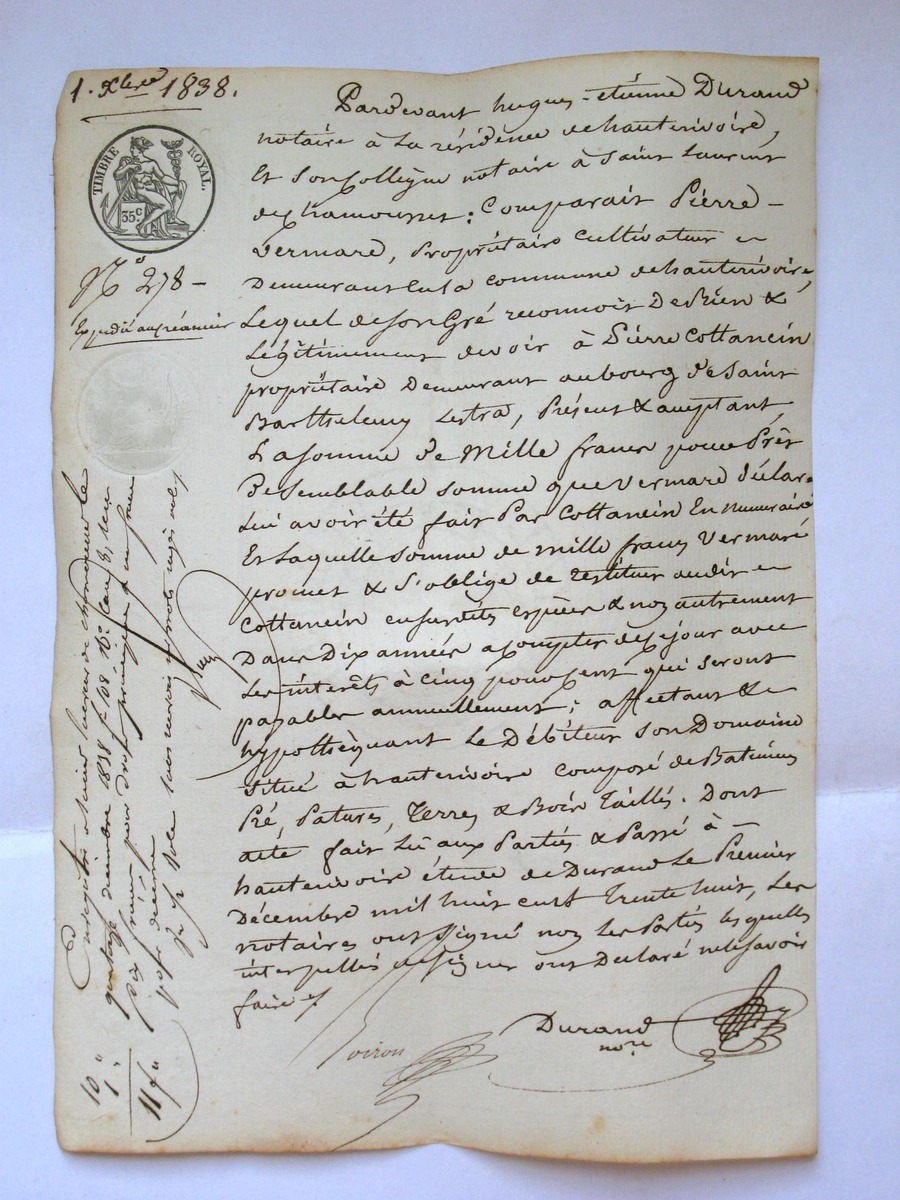 1. Xbre 1838.
TIMBRE ROYAL.
35c
No 278 -
Expédié au créancier
Pardevant hugues-étienne Durand
notaire à La résidence de hauterivoire,
Et Son Collègue notaire à Saint Laurent
de Chamousset: Comparait Pierre -
Vermare, Propriétaire Cultivateur
Demeurant En La commune de hauterivoire,
Lequel de Son Gré reconnoit De Rien &
Légitimement devoir à Pierre Cottancin
propriétaire Demeurant au bourg de Saint
Barthelemy Lestra, Présent & acceptant
La Somme de Mille francs pour Prêt
De Semblable somme que Vermare déclare
Lui avoir été fait Par Cottancin En Numeraire
Et Laquelle Somme de mille francs Vermare
promet & S'oblige de restituer audit
Cottancin en susdites espèces & non autrement
Dans Dix années a Compter de ce jour avec
Les intérêts à Cinq pour Cent qui seront
payables annuellement; affectant &
hypothéquant Le Débiteur Son Domaine
Situé à hauterivoire composé de Batimens
Pré, Patures, Terres & Bois Taillis. Dont
acte fait Lû aux Parties & Passé à -
hauterivoire étude de Durand Le Premier
Décembre mil huit cent trente huit, Les
notaires ont Signé non Les Parties lesquelles
interpellées de signer ont Declaré ne le Savoir
faire
Durand
nore
Voiron
Enregistré à Saint Laurent de Chamousset le
quatorze décembre 1838 f. 108
dix francs pour droit principal & un franc
pour decime
10 "
1 "
11 f "